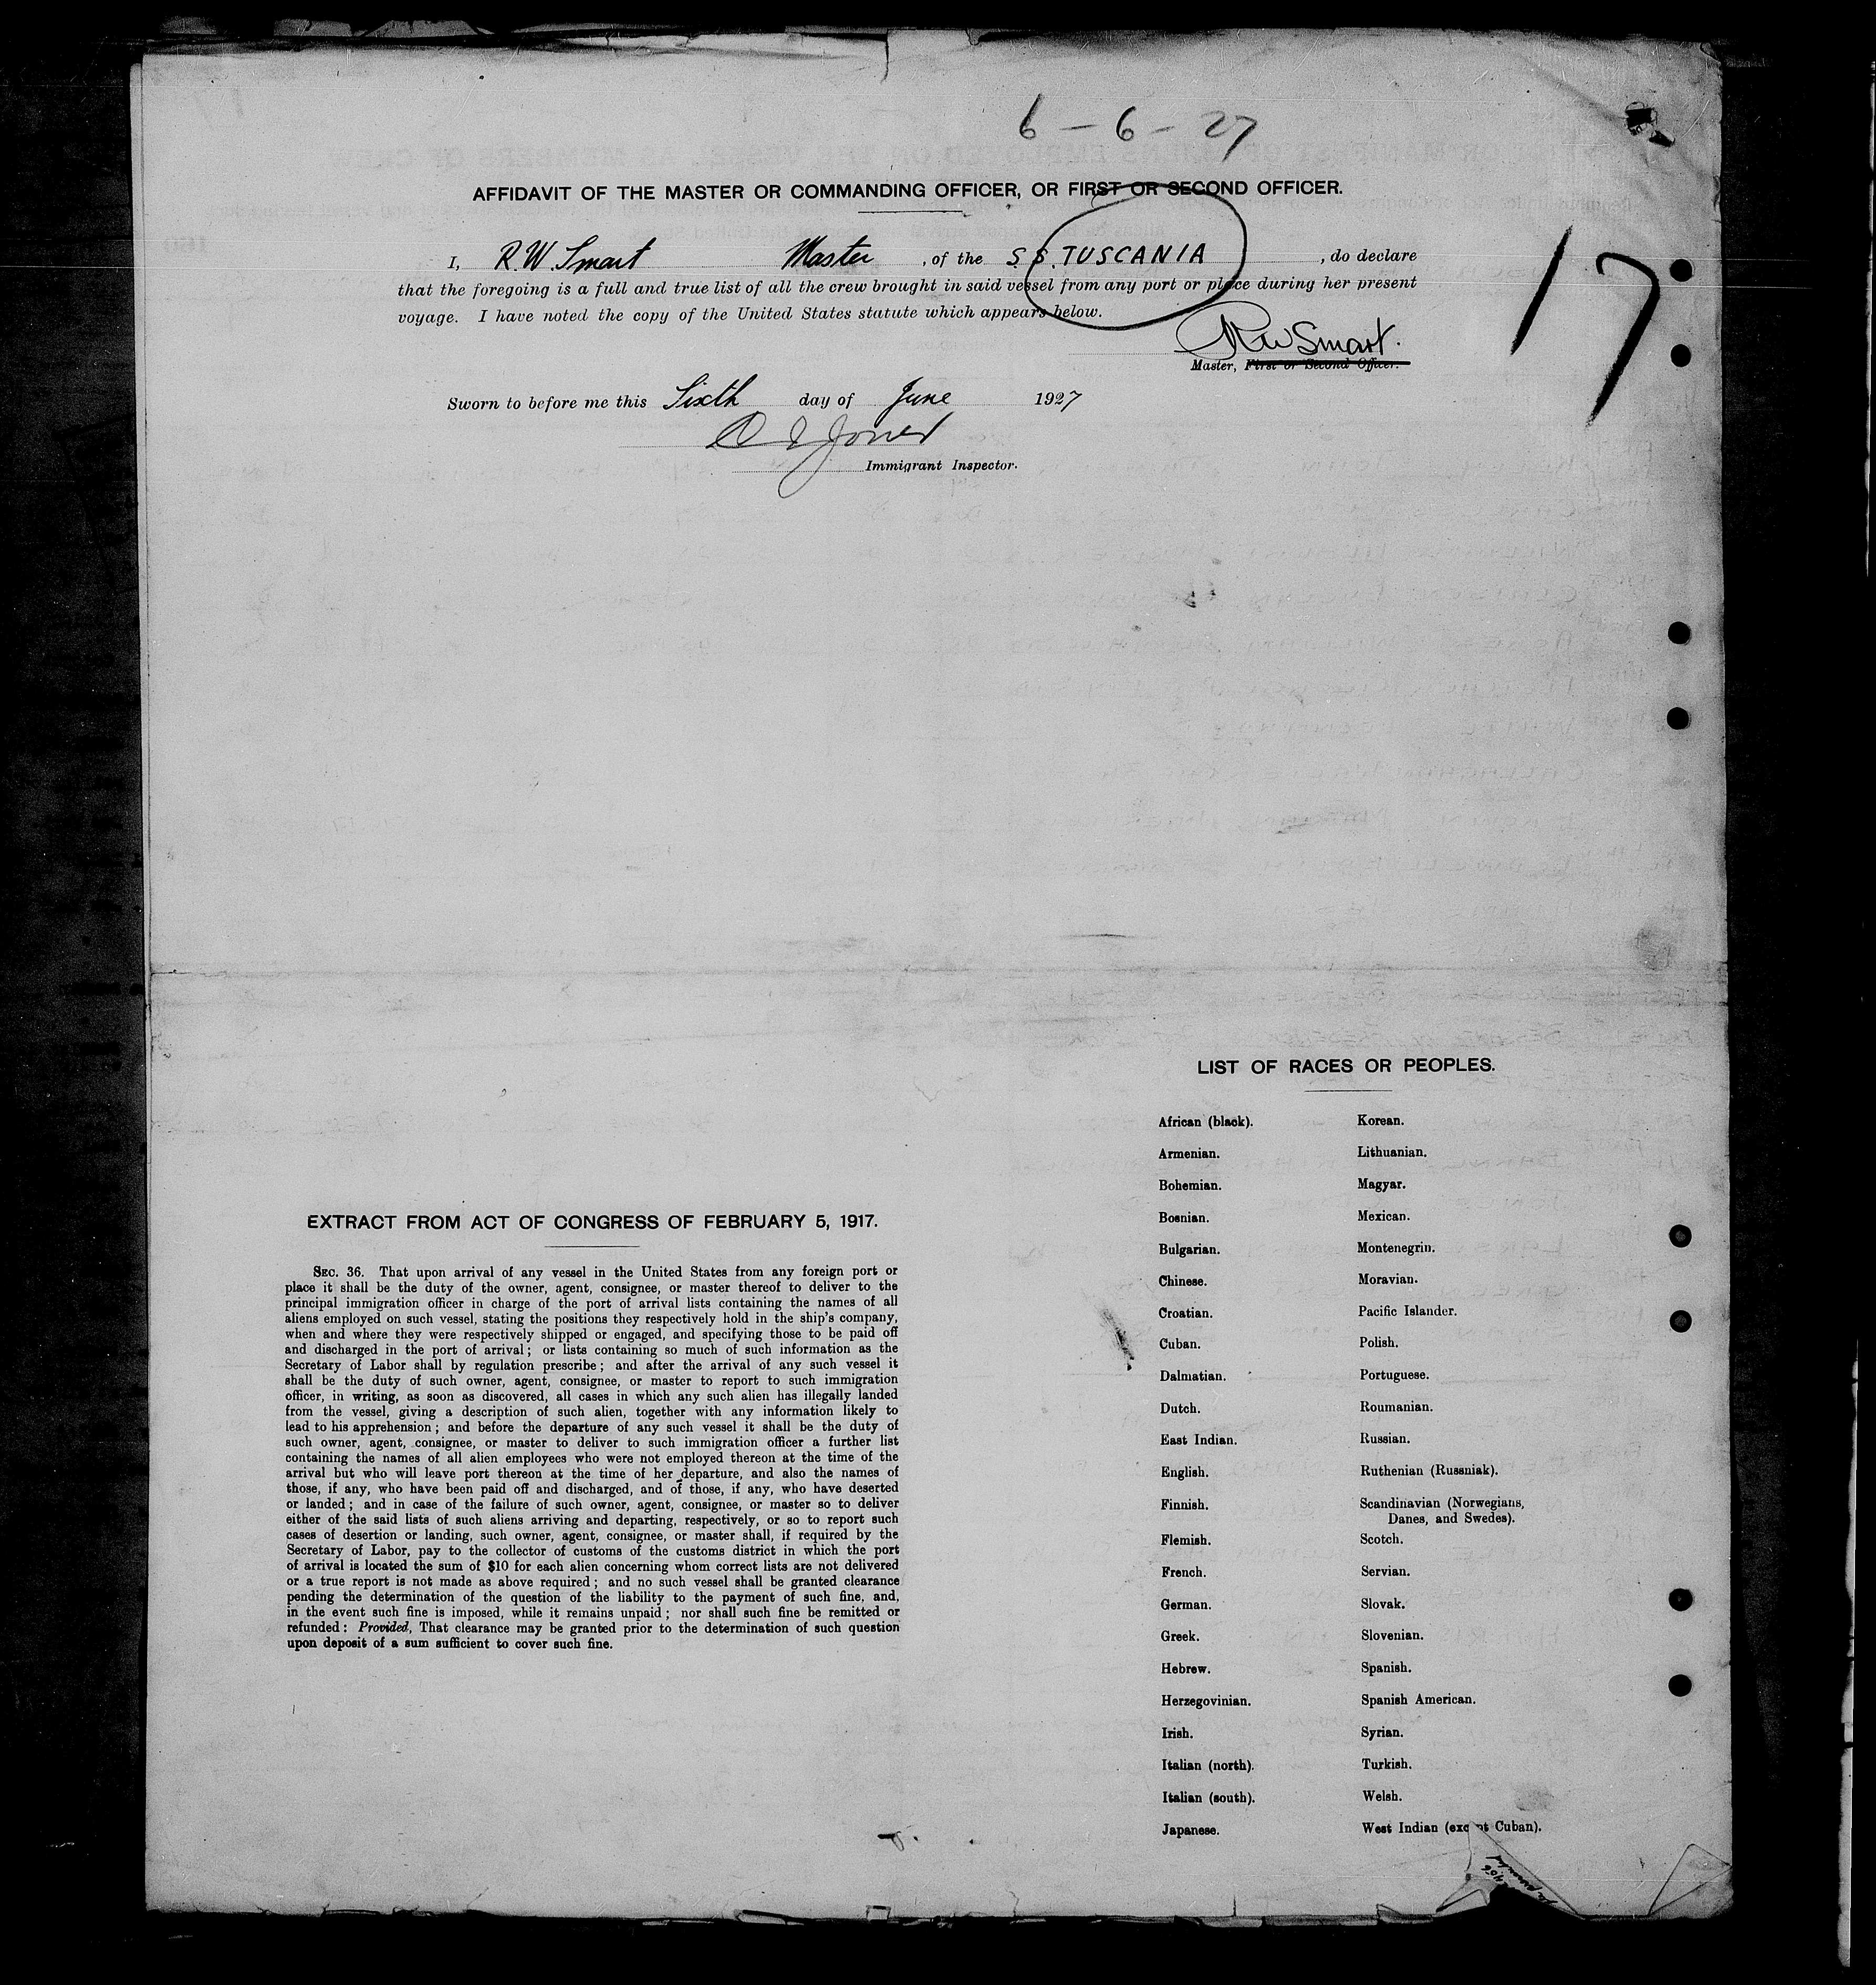 6 - 6 - 27
AFFIDAVIT OF THE MASTER OR COMMANDING OFFICER, OR FIRST OR SECOND OFFICER.
I, R.W. Smart Master, of the S.S. TUSCANIA, do declare
that the foregoing is a full and true list of all the crew brought in said vessel from any port or place during her present
voyage. I have noted the copy of the United States statute which appears below.
17
RW Smart.
Master, First or Second Officer.
Sworn to before me this Sixth day of June 1927
Jones
Immigrant Inspector.
EXTRACT FROM ACT OF CONGRESS OF FEBRUARY 5, 1917.
SEC. 36. That upon arrival of any vessel in the United States from any foreign port or
place it shall be the duty of the owner, agent, consignee, or master thereof to deliver to the
principal immigration officer in charge of the port of arrival lists containing the names of all
aliens employed on such vessel, stating the positions they respectively hold in the ship's company,
when and where they were respectively shipped or engaged, and specifying those to be paid off
and discharged in the port of arrival; or lists containing so much of such information as the
Secretary of Labor shall by regulation prescribe; and after the arrival of any such vessel it
shall be the duty of such owner, agent, consignee, or master to report to such immigration
officer, in writing, as soon as discovered, all cases in which any such alien has illegally landed
from the vessel, giving a description of such alien, together with any information likely to
lead to his apprehension; and before the departure of any such vessel it shall be the duty of
such owner, agent, consignee, or master to deliver to such immigration officer a further list
containing the names of all alien employees who were not employed thereon at the time of the
arrival but who will leave port thereon at the time of her departure, and also the names of
those, if any, who have been paid off and discharged, and of those, if any, who have deserted
or landed; and in case of the failure of such owner, agent, consignee, or master so to deliver
either of the said lists of such aliens arriving and departing, respectively, or so to report such
cases of desertion or landing, such owner, agent, consignee, or master shall, if required by the
Secretary of Labor, pay to the collector of customs of the customs district in which the port
of arrival is located the sum of $10 for each alien concerning whom correct lists are not delivered
or a true report is not made as above required; and no such vessel shall be granted clearance
pending the determination of the question of the liability to the payment of such fine, and,
in the event such fine is imposed, while it remains unpaid; nor shall such fine be remitted or
refunded: Provided, That clearance may be granted prior to the determination of such question
upon deposit of a sum sufficient to cover such fine.
LIST OF RACES OR PEOPLES.
African (black).
Armenian.
Bohemian.
Bosnian.
Bulgarian.
Chinese.
Croatian.
Cuban.
Dalmatian.
Dutch.
East Indian.
English.
Finnish.
Flemish.
French.
German.
Greek.
Hebrew.
Herzegovinian.
Irish.
Italian (north).
Italian (south).
Japanese.
Korean.
Lithuanian.
Magyar.
Mexican.
Montenegrin.
Moravian.
Pacific Islander.
Polish.
Portuguese.
Roumanian.
Russian.
Ruthenian (Russniak).
Scandinavian (Norwegians,
Danes, and Swedes).
Scotch.
Servian.
Slovak.
Slovenian.
Spanish.
Spanish American.
Syrian.
Turkish.
Welsh.
West Indian (except Cuban).